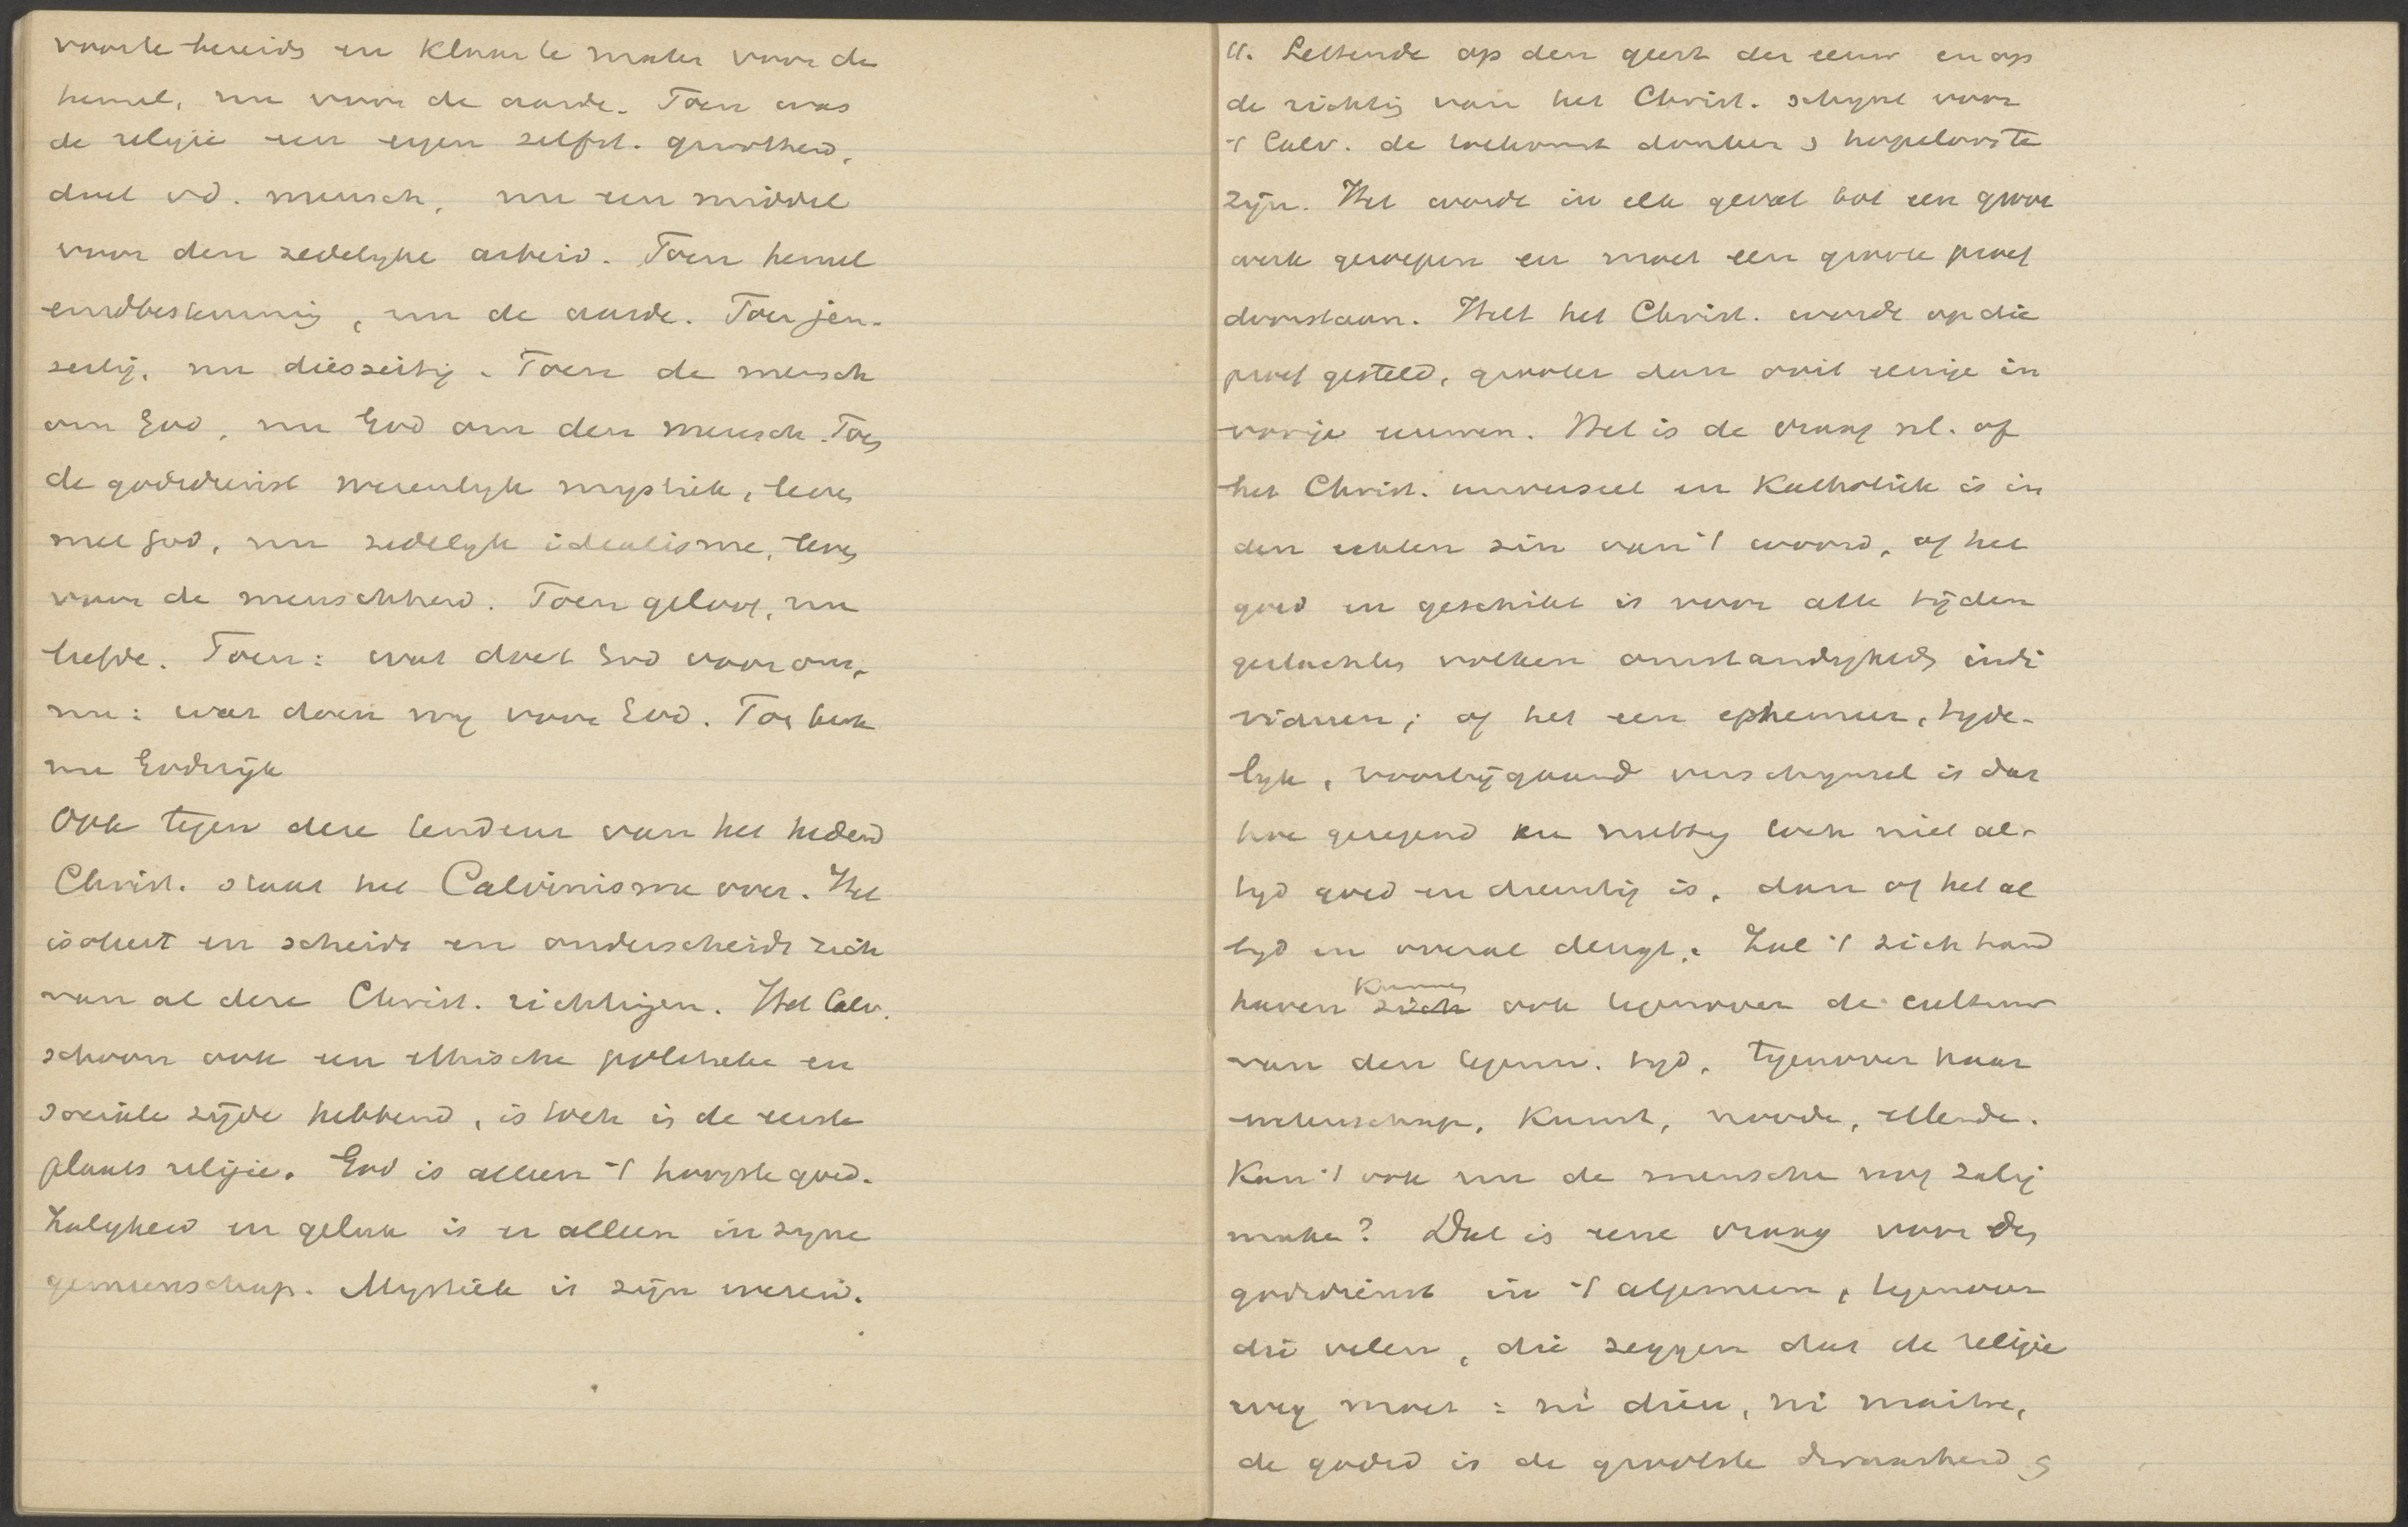 voor te bereids en klaar te maken voor de
hemel, nu voor de aarde. Toen was
de religie een eigen zelfst. grootheid,
doel v.d. mensch, nu een middel
voor den zedelyke arbeid. Toen hemel
eindbestemming, nu de aarde. Toen jen-
seitig, nu diesseitig. Toen de mensch
om God, nu God om den mensch. Toen
de godsdienst wezenlyk mystiek, leven
met God, nu zedelyk idealisme, leven
voor de menschheid. Toen geloof, nu
liefde. Toen: wat doet God voor ons,
nu: wat doen wy voor God. Toen kerk
nu Godsrijk
Ook tegen deze tendenz van het hedend
Christ. staat het Calvinisme over. Het
isoleert en scheidt en onderscheidt zich
van al deze Christ. richtingen. Het Calv.
schoon ook een ethische politieke en
sociale zijde hebbend, is toch in de eerste
plaats religie. God is alleen 't hoogste goed.
Zaligheid en geluk is er alleen in zyne
gemeenschap. Mystiek is zijn wezen.
11. Lettende op den geest der eeuw en op
de richting van het Christ. schynt voor
't Calv. de toekomst donker & hopeloos te
zijn. Het wordt in elk geval tot een groot
werk geroepen en moet een groote proef
doorstaan. Heel het Christ. wordt op die
proef gesteld, grooter dan ooit eenige in
vorige eeuwen. Het is de vraag nl. of
het Christ. universeel en Katholiek is in
den echten zin van 't woord, of het
goed en geschikt is voor alle tijden
geslachten volken omstandigheden indi
viduen; of het een ephemeer, tyde-
lyk, voorbijgaand verschynsel is dat
hoe gezegend en nuttig toch niet al-
tyd goed en dienstig is, dan of het al
tyd en overal deugt. Zal 't zich hand
haven kunnen ~~zich~~ ook tegenover de cultuur
van den tegenw. tyd, tegenover haar
wetenschap, kunst, noode, ellende.
Kan 't ook nu de mensche nog zalig
maken? Dat is eene vraag voor den
godsdienst in 't algemeen, tegenover
die velen, die zeggen dat de religie
weg moet: ni dieu, ni maitre,
de godsd is de grootste dwaasheid &